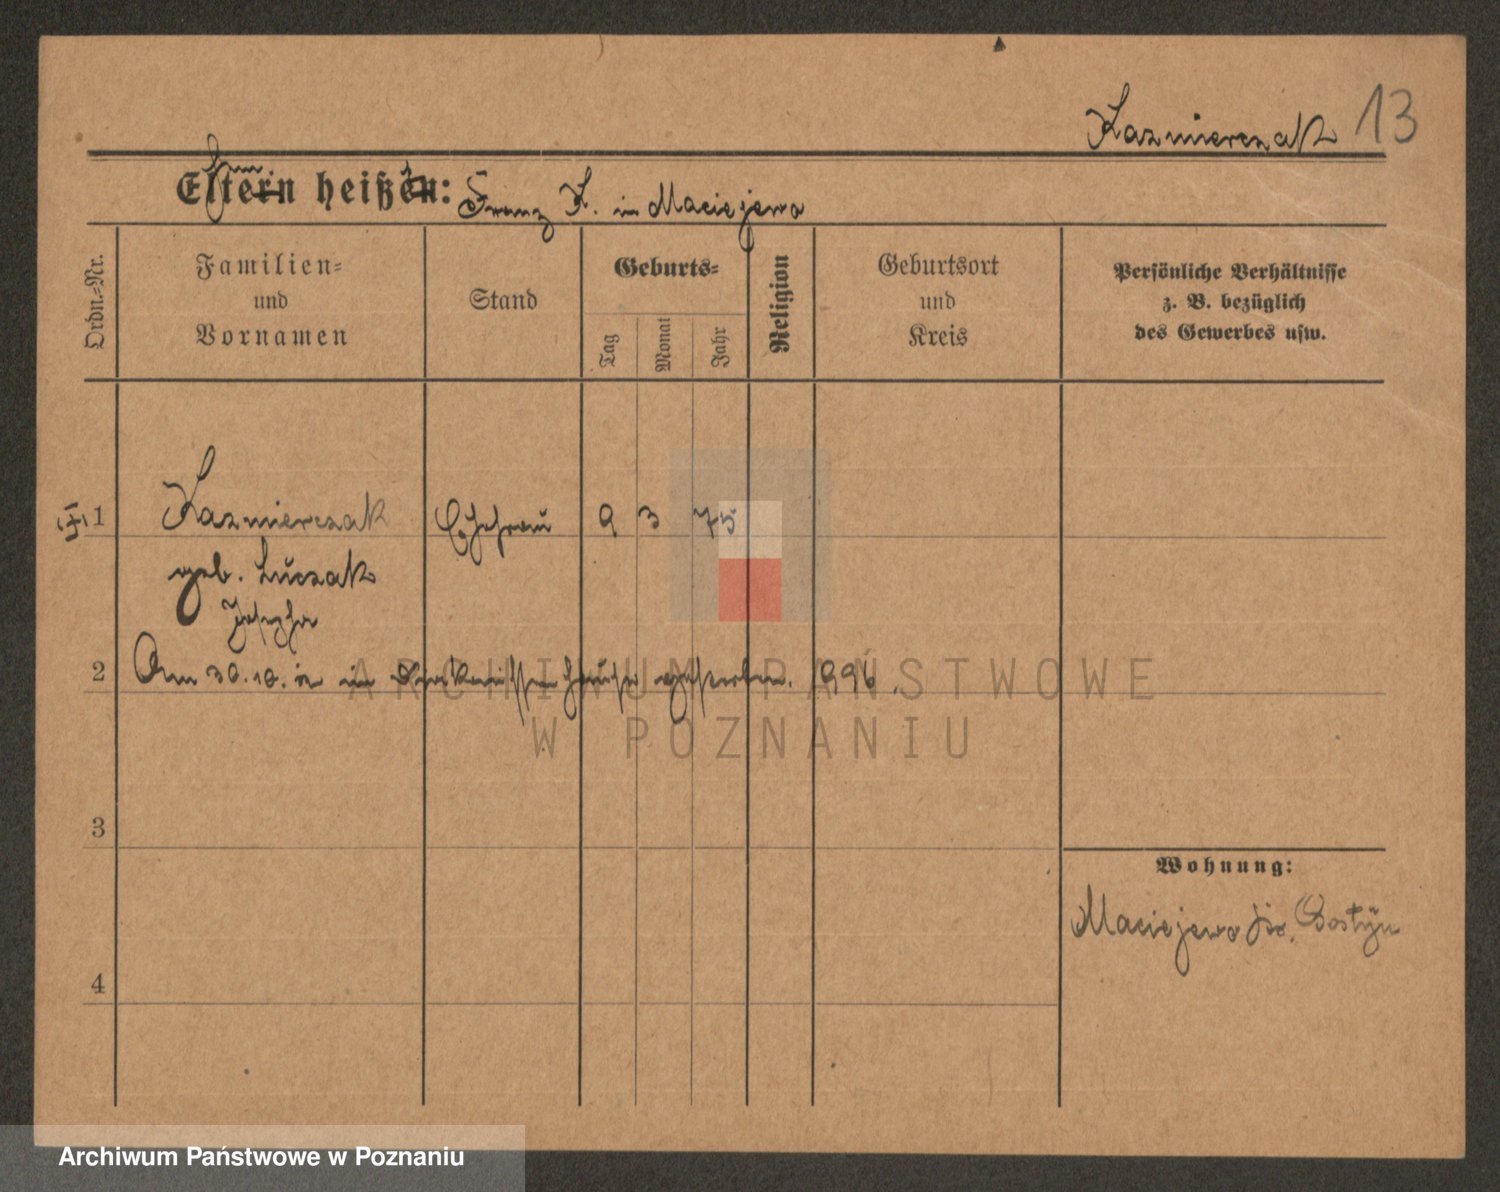 Kazmierczak 13
Eltern heißen: Franz K. in Maciejewo
Ordn.-Nr.
Familien-
und
Vornamen
Stand
Geburts-
Tag
Monat
Jahr
Religion
Geburtsort
und
Kreis
Persönliche Verhältnisse
z. B. bezüglich
des Gewerbes usw.
1 Kazmierczak Ehefrau 9 3 75
geb. Łuczak
Josepha
2 Am 30.10. in im gestorben. 996.
3
4
Wohnung:
Maciejewo Gostyn
ARCHIWUM PAŃSTWOWE
W POZNANIU
Archiwum Państwowe w Poznaniu